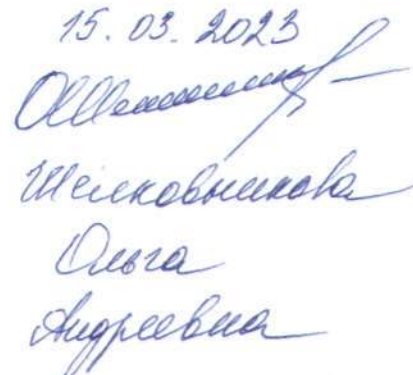 15.03.2023
Шелковникова
Ольга
Андреевна